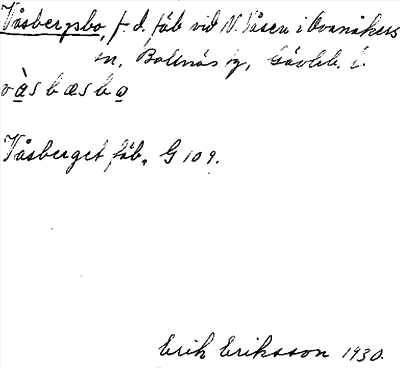 Våsbergsbo, f. d. fäb vid N. Våsen i Ovanåkers
sn, Bollnäs tg, Gävleb. l.
vàsbæsbo
Våsberget fäb. G 109.
Erik Eriksson 1930.